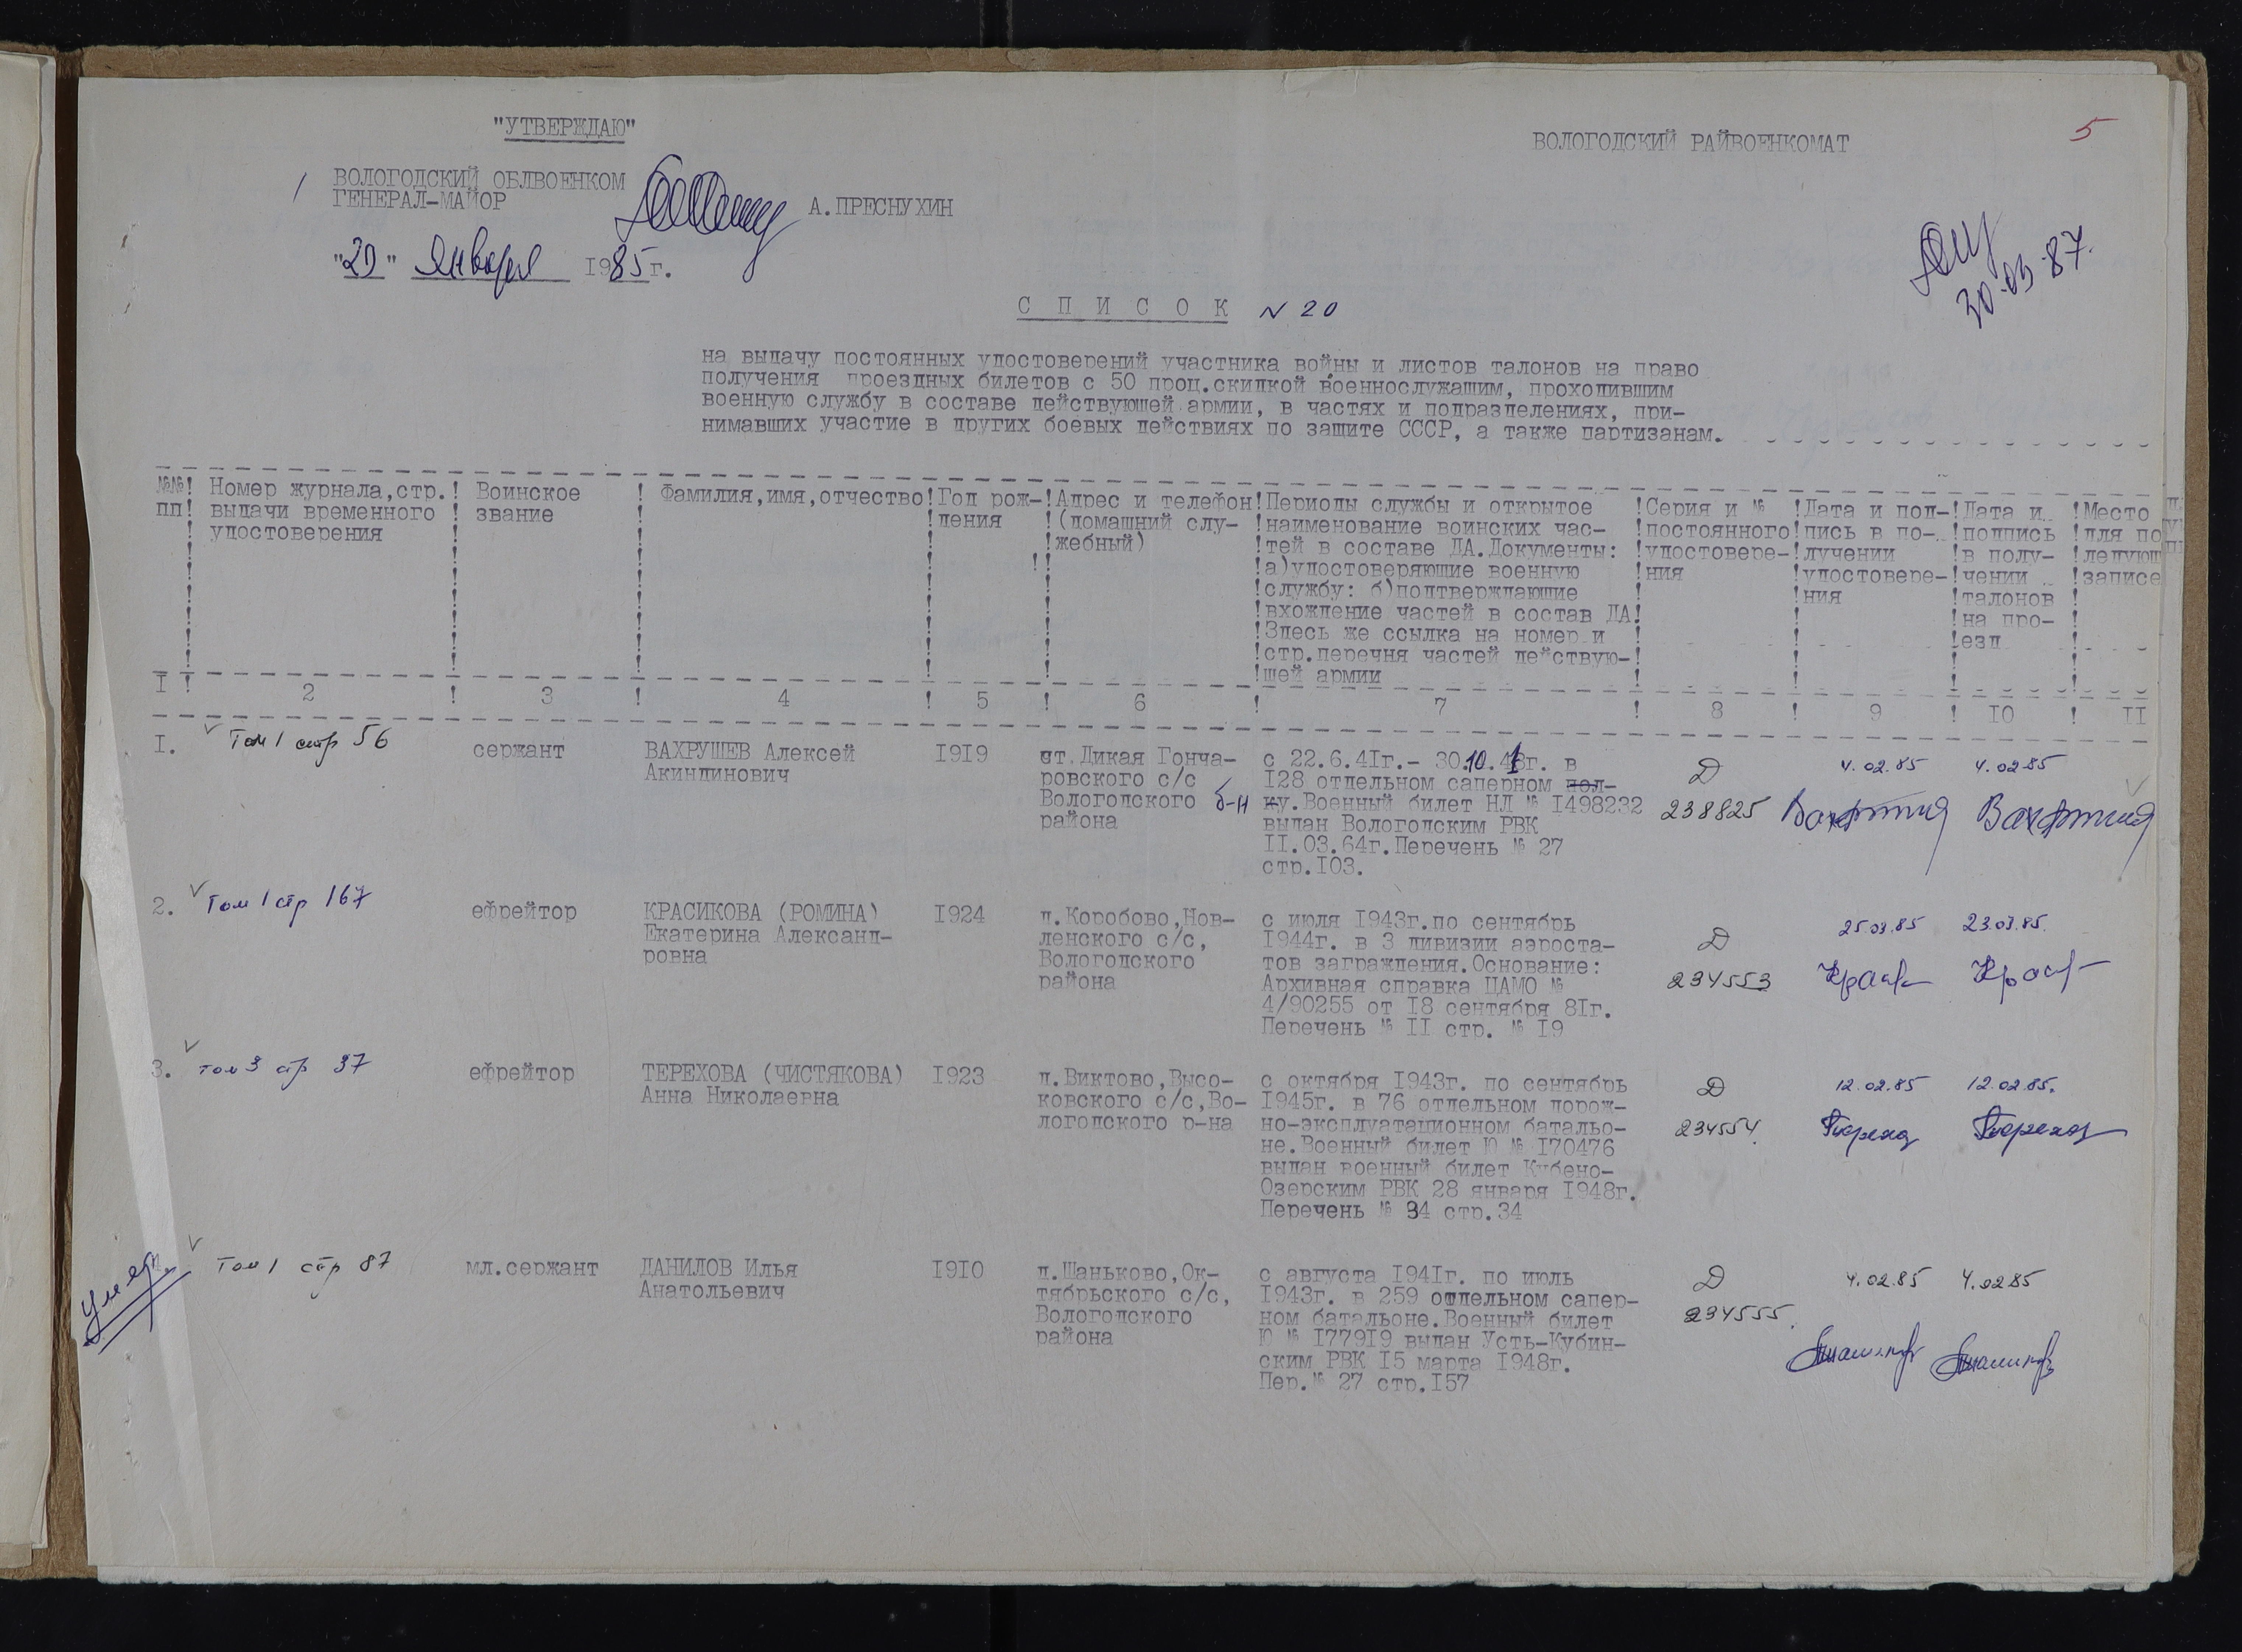 5
"УТВЕРЖДАЮ"
ВОЛОГОДСКИЙ РАЙВОЕНКОМАТ
ВОЛОГОДСКИЙ ОБЛВОЕНКОМ
ГЕНЕРАЛ-МАЙОР
А.ПРЕСНУХИН
"20" января 1985г.
30.03.87.
С П И С О К N 20
на выдачу постоянных удостоверений участника войны и листов талонов на право
получения проездных билетов с 50 проц.скидкой военнослужащим, проходившим
военную службу в составе действующей армии, в частях и подразделениях, при-
нимавших участие в других боевых действиях по защите СССР, а также партизанам.
№№ пп
Номер журнала,стр.
выдачи временного
удостоверения
Воинское
звание
Фамилия,имя,отчество
Год рож-
дения
Адрес и телефон
(домашний слу-
жебный)
Периоды службы и открытое
наименование воинских час-
тей в составе ДА.Документы:
а)удостоверяющие военную
службу: б)подтверждающие
вхождение частей в состав ДА
Здесь же ссылка на номер и
стр.перечня частей действую-
щей армии
Серия и №
постоянного
удостовере-
ния
Дата и под-
пись в по-
лучении
удостовере-
ния
Дата и
подпись
в полу-
чении
талонов
на про-
езд
Место
для по
ледующ
записе
I 2 3 4 5 6 7 8 9 10 II
I.
Том 1 стр 56
сержант
ВАХРУШЕВ Алексей
Акиндинович
I9I9
ст.Дикая Гонча-
ровского с/с
Вологодского
района
с 22.6.4Iг.- 30.10.41г. в
I28 отдельном саперном пол-
б-н ку.Военный билет НД № I498232
выдан Вологодским РВК
II.03.64г.Перечень № 27
стр.I03.
Д
238825
4.02.85
4.02.85
2.
Том 1 стр 167
ефрейтор
КРАСИКОВА (РОМИНА)
Екатерина Александ-
ровна
I924
д.Коробово,Нов-
ленского с/с,
Вологодского
района
с июля I943г.по сентябрь
I944г. в 3 дивизии аэроста-
тов заграждения.Основание:
Архивная справка ЦАМО №
4/90255 от I8 сентября 8Iг.
Перечень № II стр. № I9
Д
234553
25.03.85
23.03.85.
3.
том 3 стр 37
ефрейтор
ТЕРЕХОВА (ЧИСТЯКОВА)
Анна Николаевна
I923
д.Виктово,Высо-
ковского с/с,Во-
логодского р-на
с октября I943г. по сентябрь
I945г. в 76 отдельном дорож-
но-эксплуатационном батальо-
не.Военный билет Ю № I70476
выдан военный билет Кубено-
Озерским РВК 28 января I948г.
Перечень № 34 стр.34
Д
234554.
12.02.85
12.02.85.
Умер.
Том 1 стр 87
мл.сержант
ДАНИЛОВ Илья
Анатольевич
I9I0
д.Шаньково,Ок-
тябрьского с/с,
Вологодского
района
с августа I94Iг. по июль
I943г. в 259 отдельном сапер-
ном батальоне.Военный билет
Ю № I779I9 выдан Усть-Кубин-
ским РВК I5 марта I948г.
Пер.№ 27 стр.I57
Д
234555.
4.02.85
4.02.85